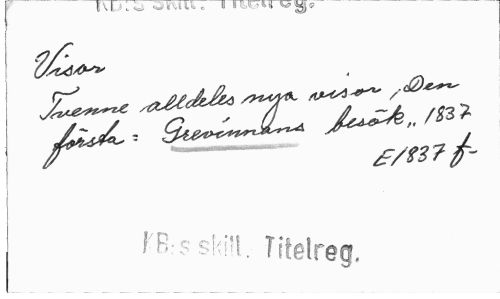 KB:s skill. Titelreg.
Visor
Tvenne alldeles nya visor, Den
första: Grevinnans besök,, 1837
E1837 f-
KB:s skill. Titelreg.